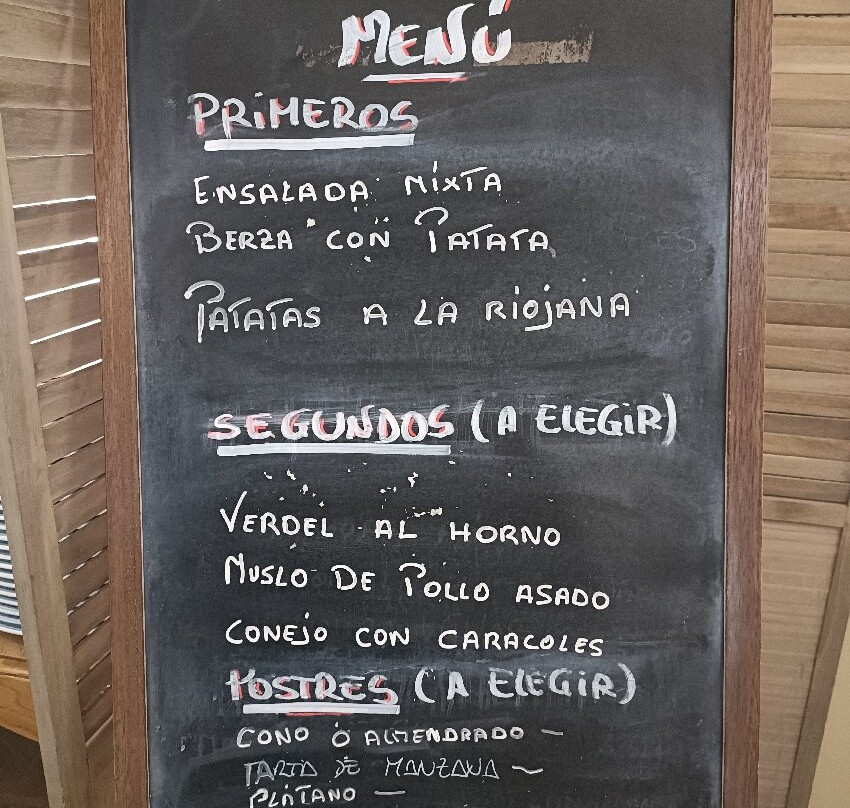 MENÚ
PRIMEROS
ENSALADA MIXTA
BERZA CON PATATA
PATATAS A LA RIOJANA
SEGUNDOS (A ELEGIR)
VERDEL AL HORNO
MUSLO DE POLLO ASADO
CONEJO CON CARACOLES
POSTRES (A ELEGIR)
CONO Ó ALMENDRADO —
TARTA DE MANZANA —
PLÁTANO —